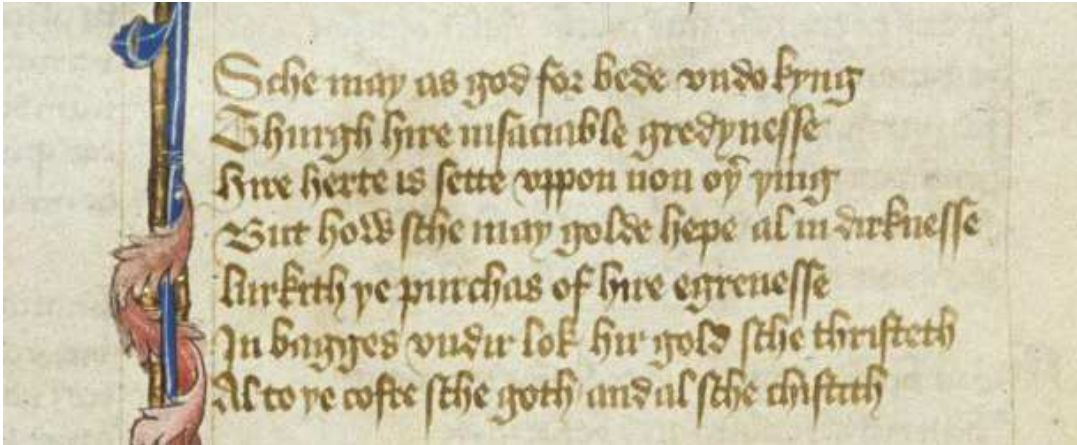 Sche may as god for bede vndo kyng
Thurgh hire insaciable gredynesse
hire herte is sette vppon non oỹ ying
But how sche may golde hepe al in dirknesse
lurkith ye purchas of hire egrenesse
In bagges vndir lok hir gold sche thristeth
Al to ye cofre sche goth and al sche chistith